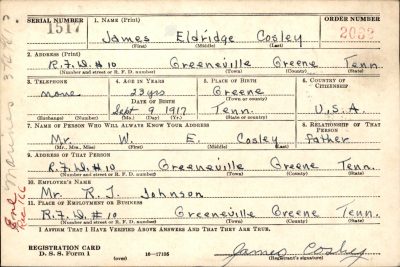 SERIAL NUMBER 1. NAME (Print) ORDER NUMBER
1517 James Eldridge Cosley
(First) (Middle) (Last)
2. ADDRESS (Print)
R.F.D. #10 Greeneville Greene Tenn.
(Number and street or R. F. D. number) (Town) (County) (State)
3. TELEPHONE 4. AGE IN YEARS 5. PLACE OF BIRTH 6. COUNTRY OF CITIZENSHIP
none 23 yrs Greene
DATE OF BIRTH (Town or county)
Sept 9 1917 Tenn. U.S.A.
(Exchange) (Number) (Mo.) (Day) (Yr.) (State or country)
7. NAME OF PERSON WHO WILL ALWAYS KNOW YOUR ADDRESS 8. RELATIONSHIP OF THAT PERSON
Mr. W. E. Cosley father
(Mr., Mrs., Miss) (First) (Middle) (Last)
9. ADDRESS OF THAT PERSON
R.F.D. #10 Greeneville Greene Tenn.
(Number and street or R. F. D. number) (Town) (County) (State)
10. EMPLOYER'S NAME
Mr. R. J. Johnson
11. PLACE OF EMPLOYMENT OR BUSINESS
R.F.D. #10 Greeneville Greene Tenn.
(Number and street or R. F. D. number) (Town) (County) (State)
I AFFIRM THAT I HAVE VERIFIED ABOVE ANSWERS AND THAT THEY ARE TRUE.
REGISTRATION CARD
D. S. S. Form 1 16—17105 James Cosley
(over) (Registrant's signature)